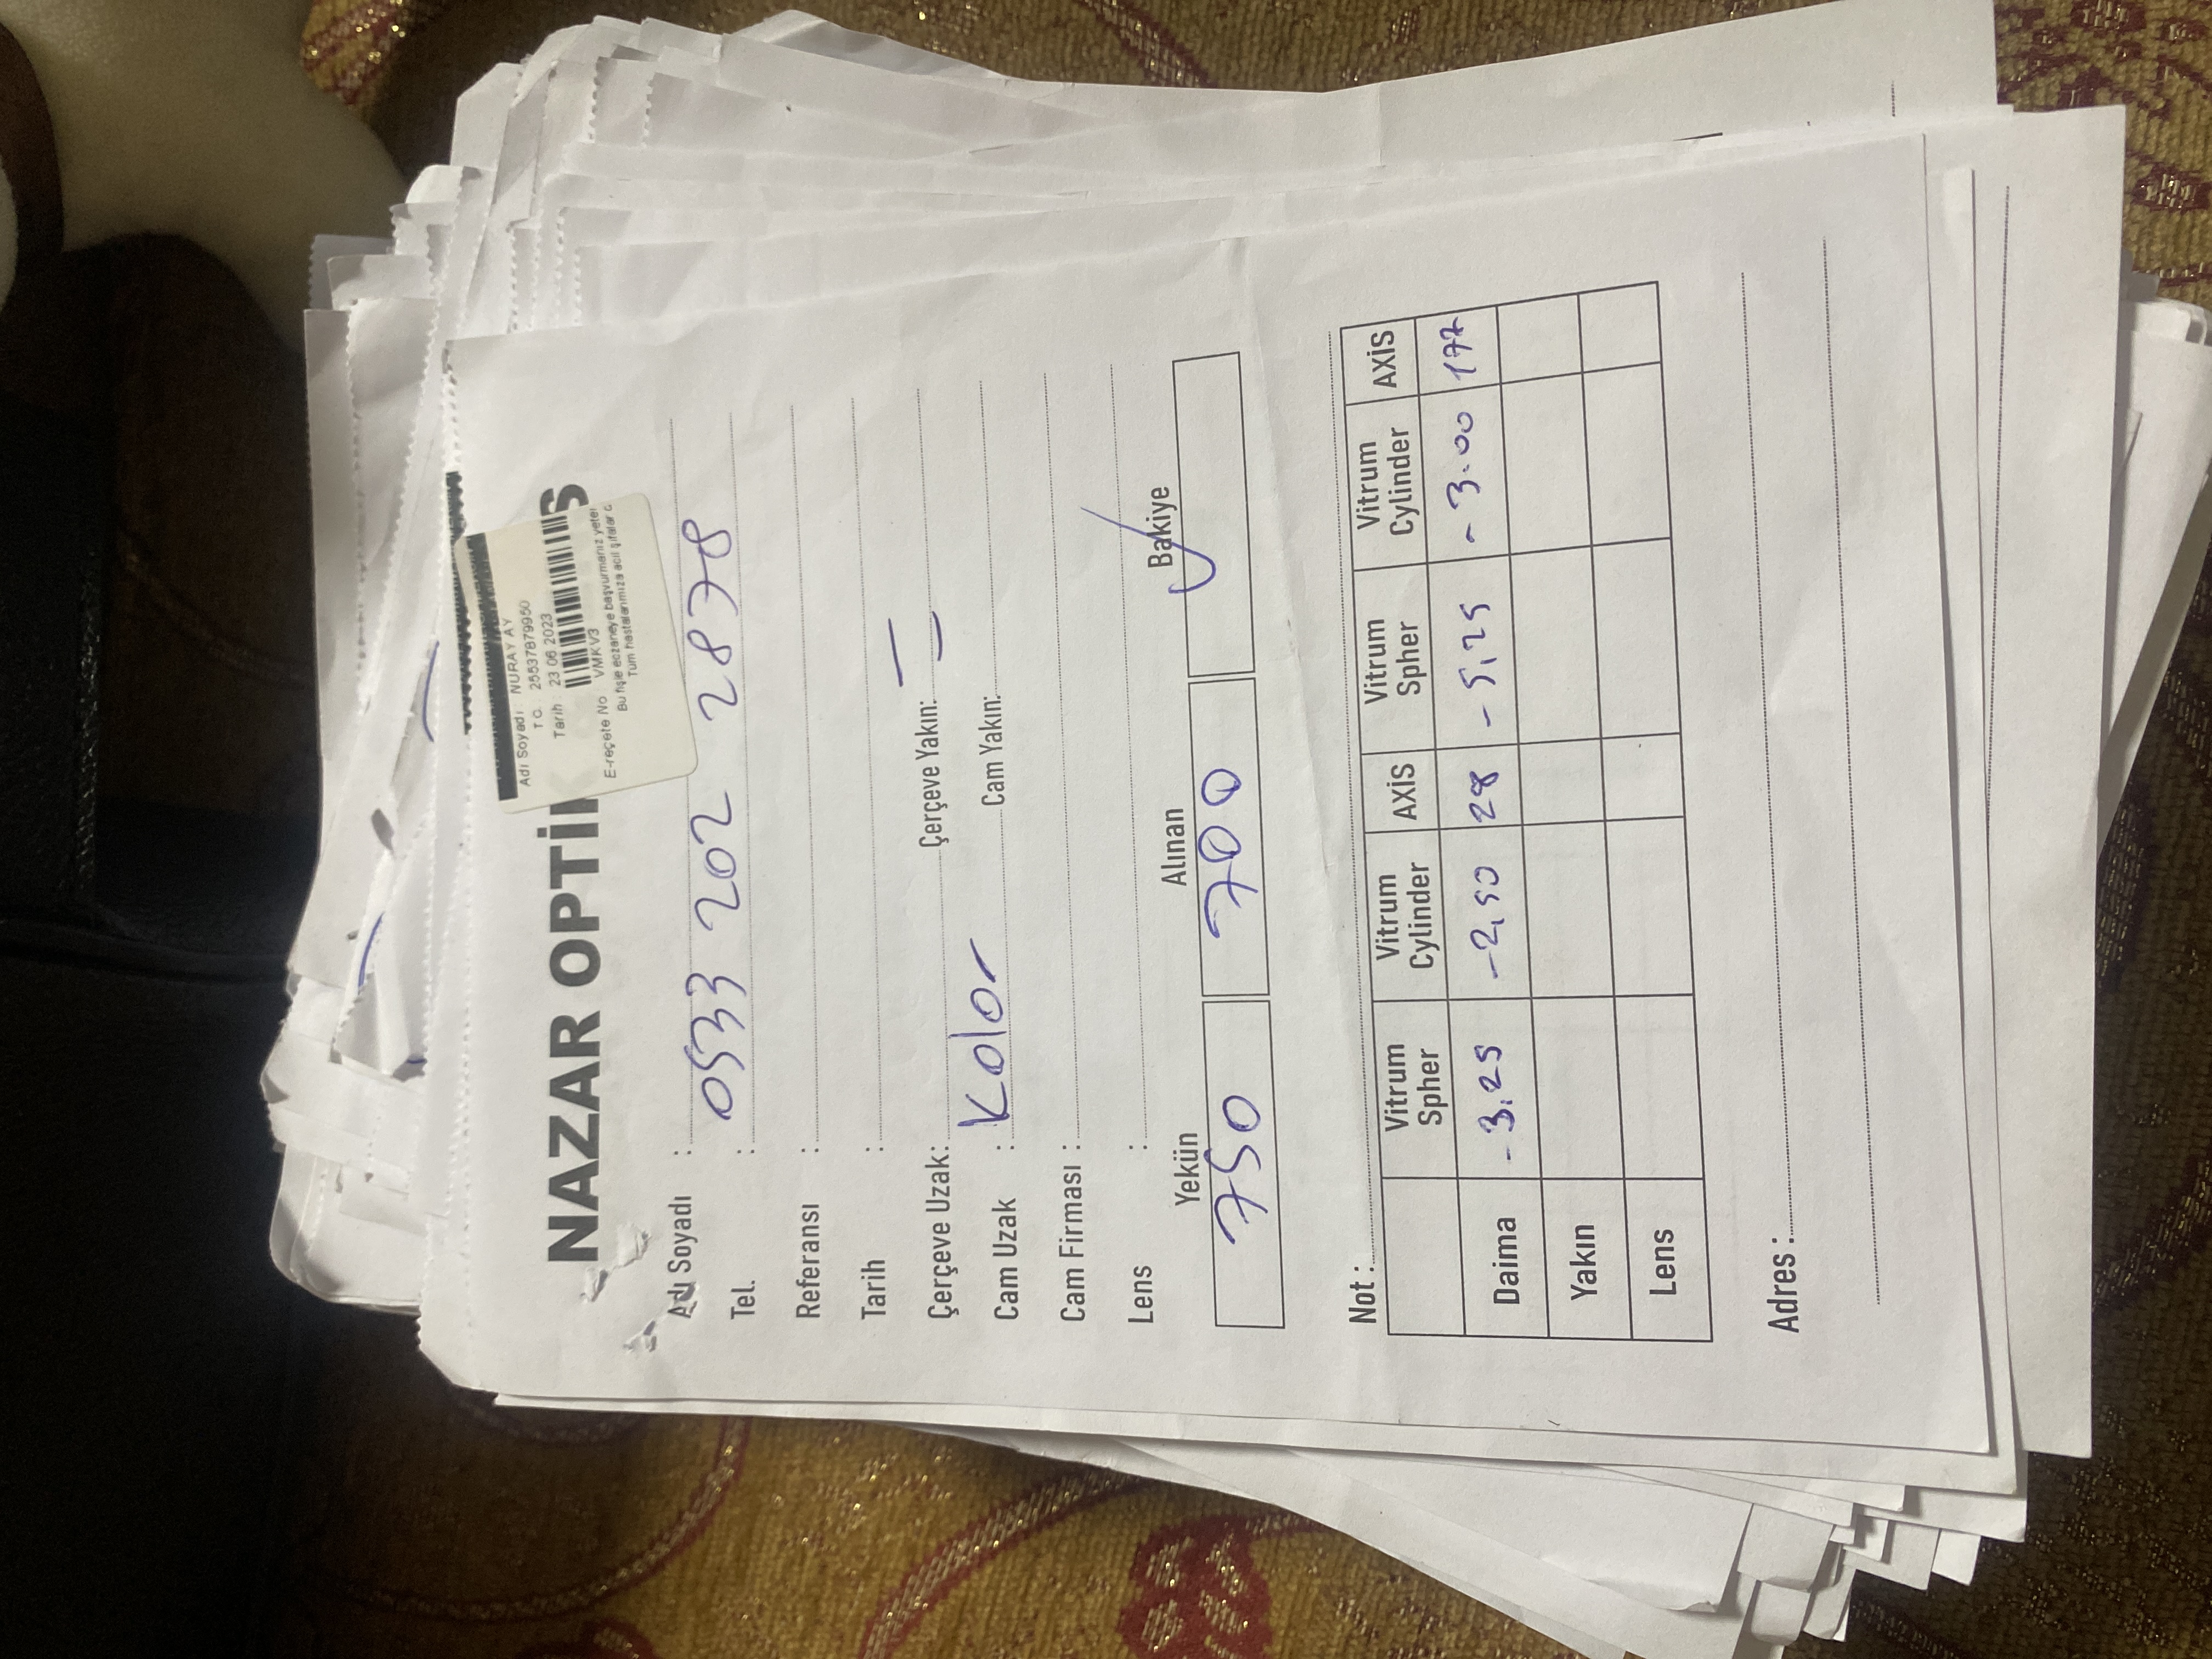 NAZAR OPTİK S
Adı Soyadı : NURAY AY
TC. 25537879950
Tarih : 23.06.2023
E-reçete No VMKV3
Bu fişle eczaneye başvurmanız yeter
Tüm hastalarımıza acil şifalar d
Adı Soyadı :
Tel. : 0533 202 2878
Referansı :
Tarih :
Çerçeve Uzak: Çerçeve Yakın:
Cam Uzak : Kolor Cam Yakın:
Cam Firması :
Lens :
Yekün Alınan Bakiye
750 700
Not :
Vitrum Spher Vitrum Cylinder AXİS Vitrum Spher Vitrum Cylinder AXİS
Daima -3,25 -2,50 28 -5,25 -3.00 177
Yakın
Lens
Adres :